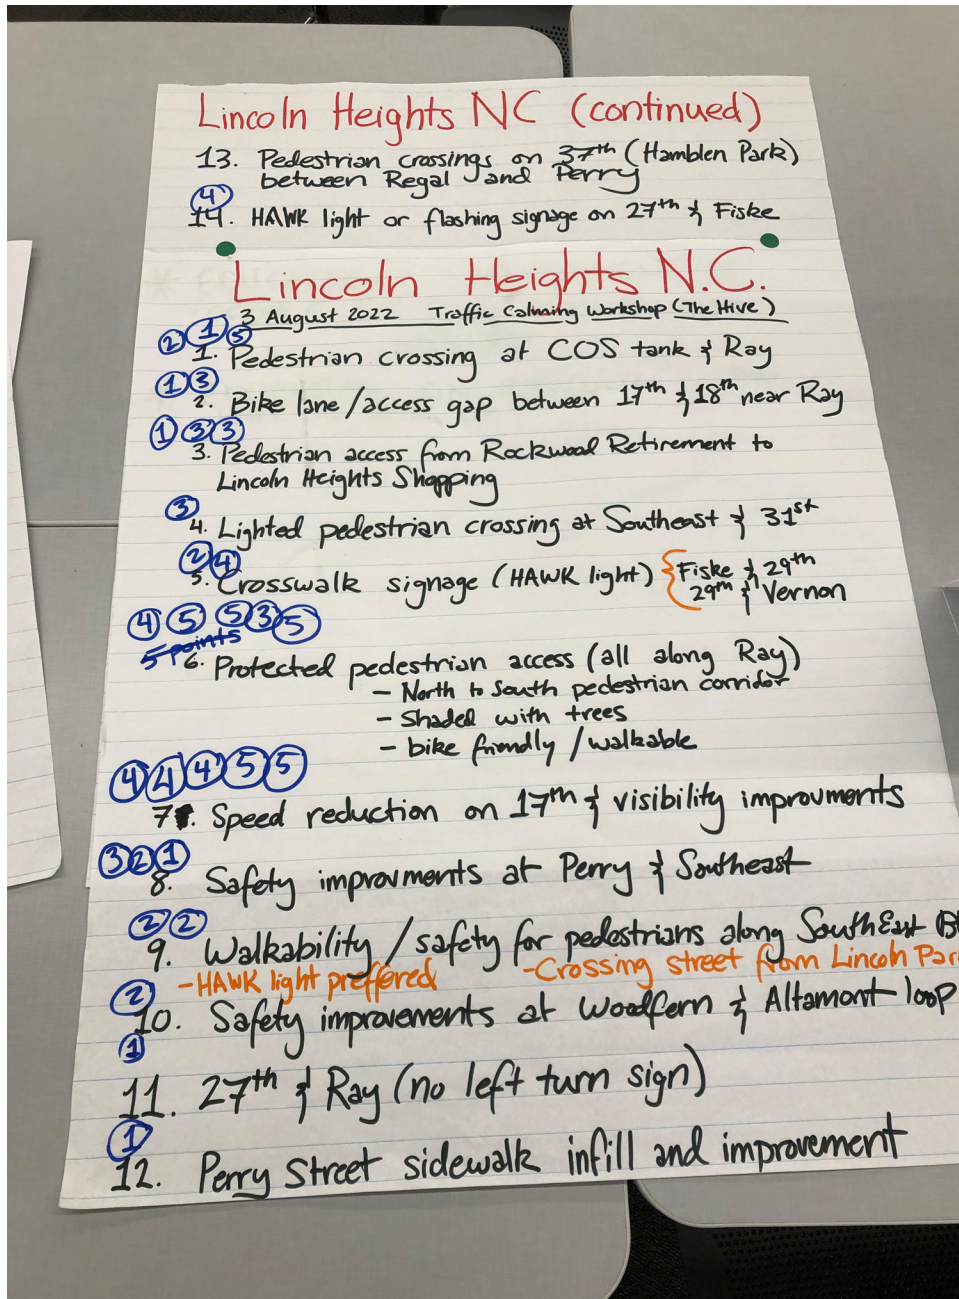 Lincoln Heights NC (continued)
13. Pedestrian crossings on 37th (Hamblen Park)
between Regal and Perry
4
14. HAWK light or flashing signage on 27th & Fiske
Lincoln Heights N.C.
3 August 2022 Traffic Calming Workshop (The Hive)
2 1 5
1. Pedestrian crossing at COS tank & Ray
1 3
2. Bike lane/access gap between 17th & 18th near Ray
1 3 3
3. Pedestrian access from Rockwood Retirement to
Lincoln Heights Shopping
3
4. Lighted pedestrian crossing at Southeast & 31st
2 4
5. Crosswalk signage (HAWK light) { Fiske & 29th
29th & Vernon
4 5 5 3 5
5 points
6. Protected pedestrian access (all along Ray)
- North to South pedestrian corridor
- Shaded with trees
- bike friendly/walkable
4 4 4 5 5
7. Speed reduction on 17th & visibility improvments
3 2 1
8. Safety improvments at Perry & Southeast
2 2
9. Walkability/safety for pedestrians along SouthEast Bl
- HAWK light preffered - Crossing street from Lincoln Par
2
10. Safety improvements at Woodfern & Altamont loop
1
11. 27th & Ray (no left turn sign)
1
12. Perry Street sidewalk infill and improvement